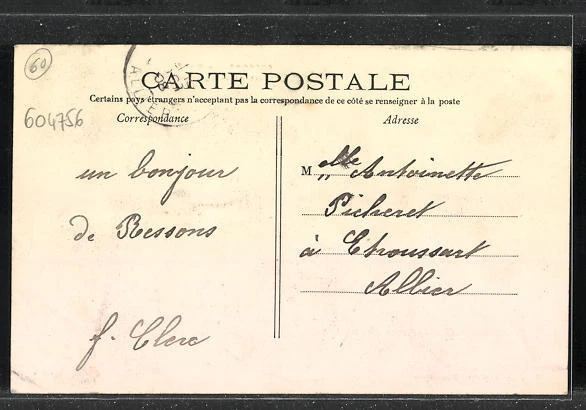 60
ALLIER
CARTE POSTALE
Certains pays étrangers n'acceptant pas la correspondance de ce côté se renseigner à la poste
604756
Correspondance
un bonjour
de Ressons
f. Clerc
Adresse
M elle Antoinette
Picheret
à Etroussart
Allier